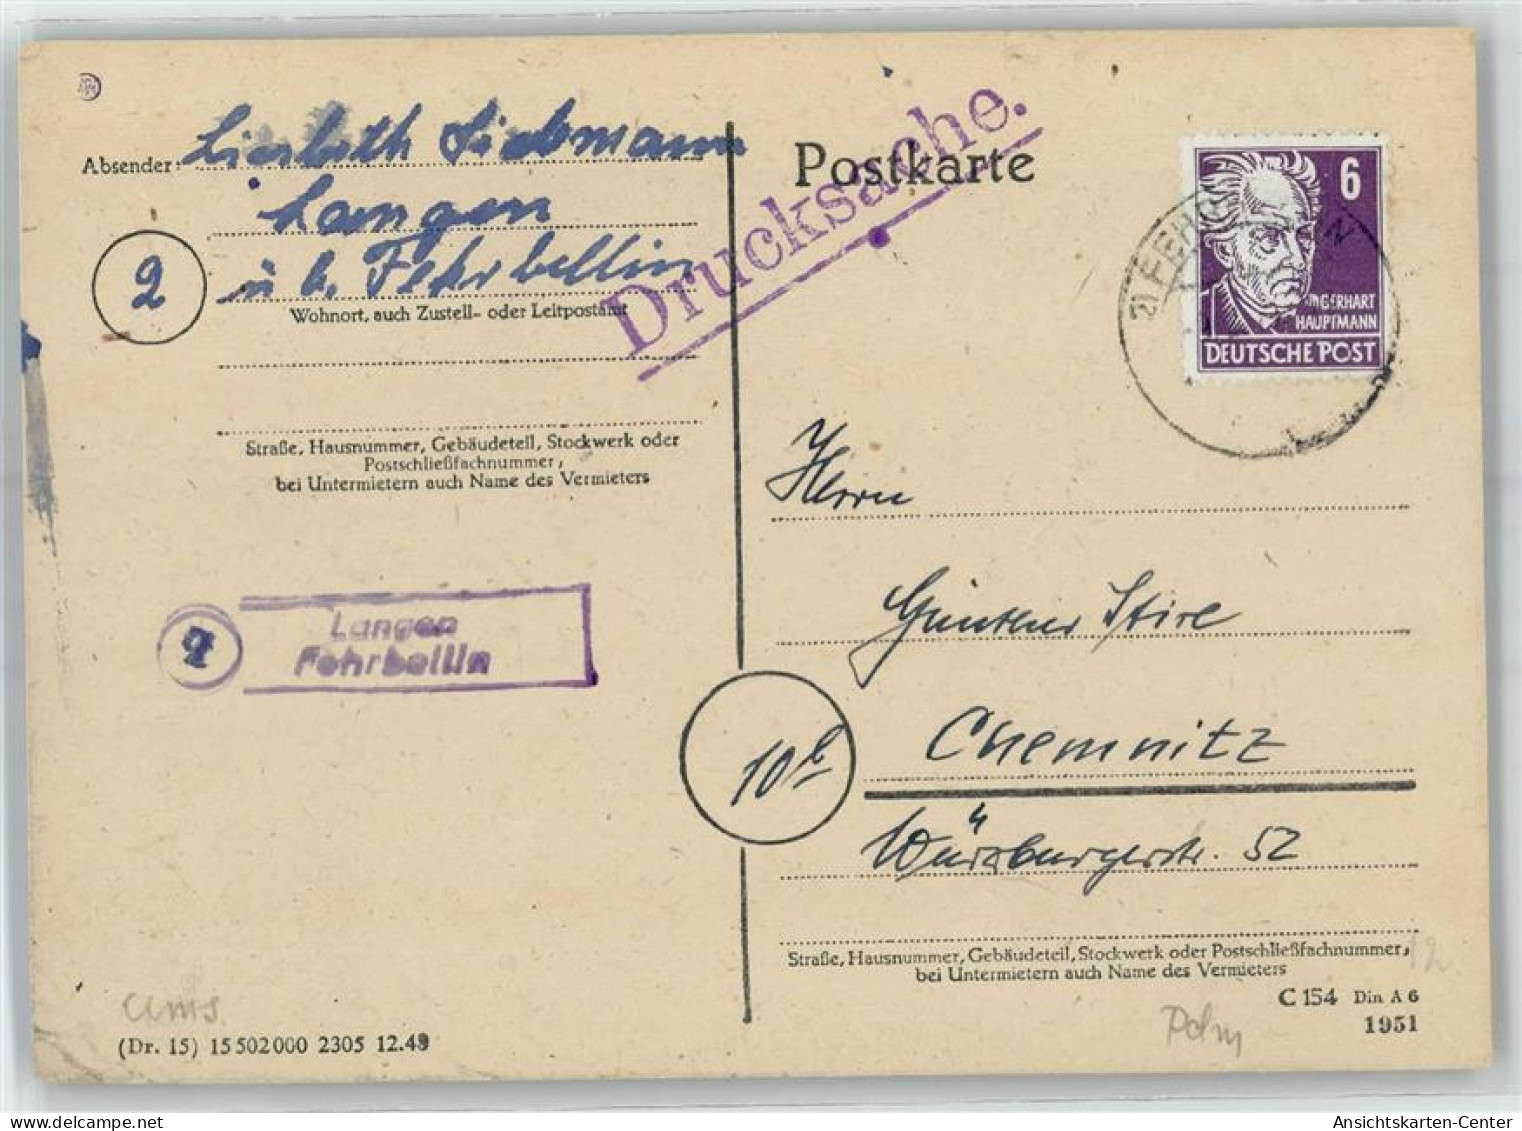 Absender:
Langen
ü. b. Fehrbellin
2
Wohnort, auch Zustell- oder Leitpostamt
Straße, Hausnummer, Gebäudeteil, Stockwerk oder
Postschließfachnummer,
bei Untermietern auch Name des Vermieters
Langen
Fehrbellin
(Dr. 15) 15 502 000 2305 12.49
Postkarte
Drucksache.
6
GERHART
HAUPTMANN
DEUTSCHE POST
Herrn
Günther Stire
10b
Chemnitz
Würzburgerstr. 52
Straße, Hausnummer, Gebäudeteil, Stockwerk oder Postschließfachnummer,
bei Untermietern auch Name des Vermieters
12
C 154 Din A 6
1951
Ansichtskarten-Center